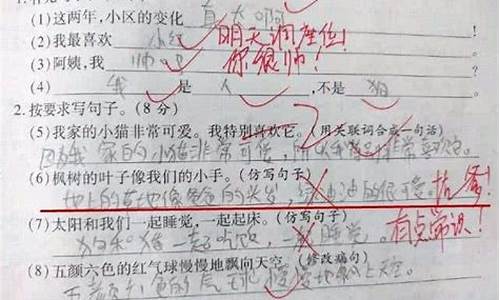 (1)这两年,小区的变化 真大啊
(2)我最喜欢 小红 明天调座位!
(3)阿姨,我 帅吧 你很帅!
(4) 我 是 人 ,不是 狗
2.按要求写句子。(8分)
(5)我家的小猫非常可爱。我特别喜欢它。(用关联词合成一句话)
因为我家的小猫非常可爱,所以我非常喜欢它。
(6)枫树的叶子像我们的小手。(仿写句子)
地上的草地像爸爸的头发,绿油油的很可爱。 抗争!
(7)太阳和我们一起睡觉,一起起床。(仿写句子)
狗和猪一起吃饭,一起睡觉。 有点常识!
(8)五颜六色的红气球慢慢地飘向天空。(修改病句)
五颜六色的气球慢慢地飘上天空。